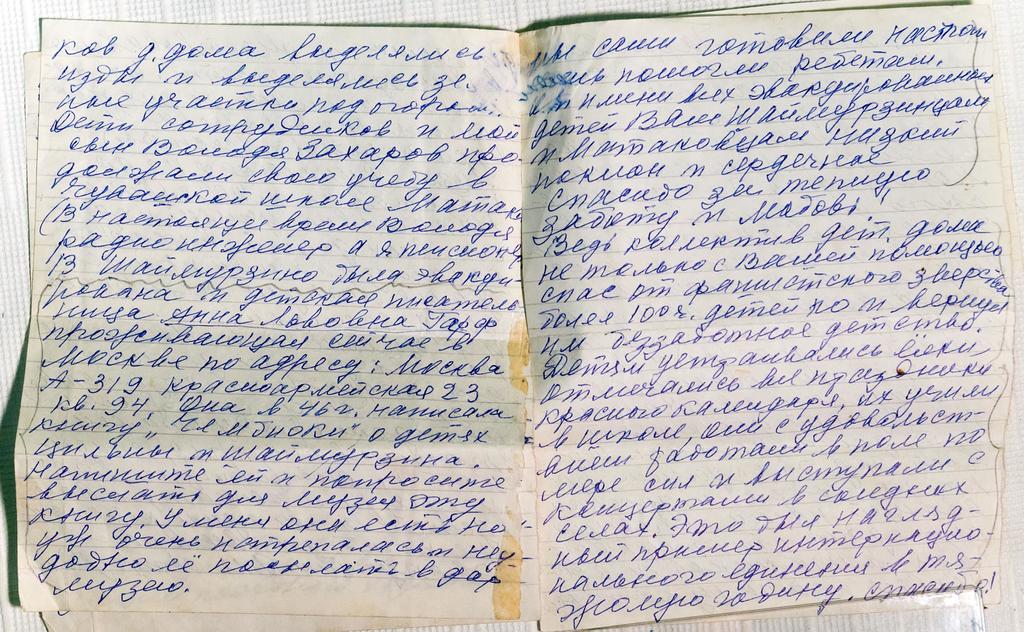 ков д. дома выделялись
изды и выделялись зе
ные участки под огород
Дети сотрудников и мой
сын Володя Захаров про-
должали свою учебу в
Чувашской школе Матаки
(В настоящее время Володя
радиоинженер а я пенсионер
В Шаймурзино была эваку-
ирована и детская писатель
ница Анна Львовна Гарф
проживающая сейчас в
Москве по адресу: Москва
А-319 Красноармейская 23
кв. 94. Она в 46 г. написала
книгу „ " о детях
Цильны и Шаймурзина.
Напишите ей и попросите
выслать для музея эту
книгу. У меня она есть но
уж очень истрепалась и неу
добно её посылать в дар
музею.
мы сами готовили
помогли ребятам.
От имени всех эвакуированных
детей Вам Шаймурзинцам
и Матаковцам низкий
поклон и сердечное
спасибо за теплую
заботу и любовь,
Ведь коллектив дет. дома
не только с Вашей помощью
спас от фашистского зверства
более 100ч. детей но и вернул
им беззаботное детство.
Детям устраивались ёлки
отмечались все праздники
красного календаря, их учили
в школе, они с удовольст-
вием работали в поле по
мере сил и выступали с
концертами в соседних
селах. Это был нагляд-
ный пример интернацио-
нального единения в тя-
жолую годину. спасибо!